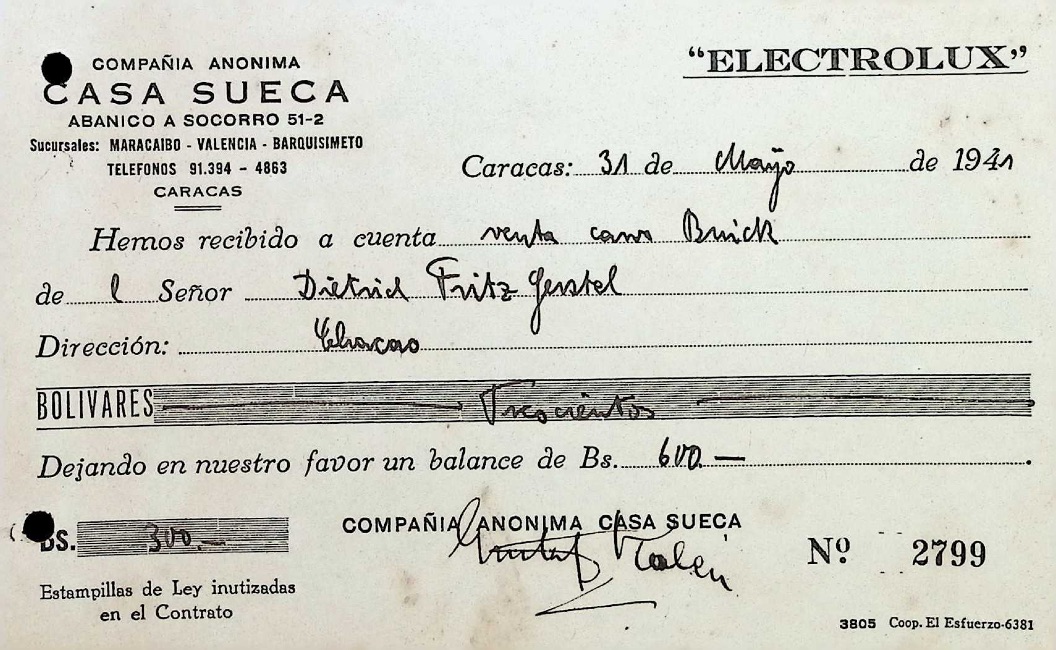 COMPAÑIA ANONIMA
CASA SUECA
ABANICO A SOCORRO 51-2
Sucursales: MARACAIBO - VALENCIA - BARQUISIMETO
TELEFONOS 91.394 - 4863
CARACAS
“ELECTROLUX”
Caracas: 31 de Mayo de 1941
Hemos recibido a cuenta venta carro Buick
de l Señor Dietrich Fritz Gerstel
Dirección: Chacao
BOLIVARES Trescientos
Dejando en nuestro favor un balance de Bs. 600.—
BS. 300.—
COMPAÑIA ANONIMA CASA SUECA
Nº 2799
Estampillas de Ley inutizadas
en el Contrato
3805 Coop. El Esfuerzo-6381